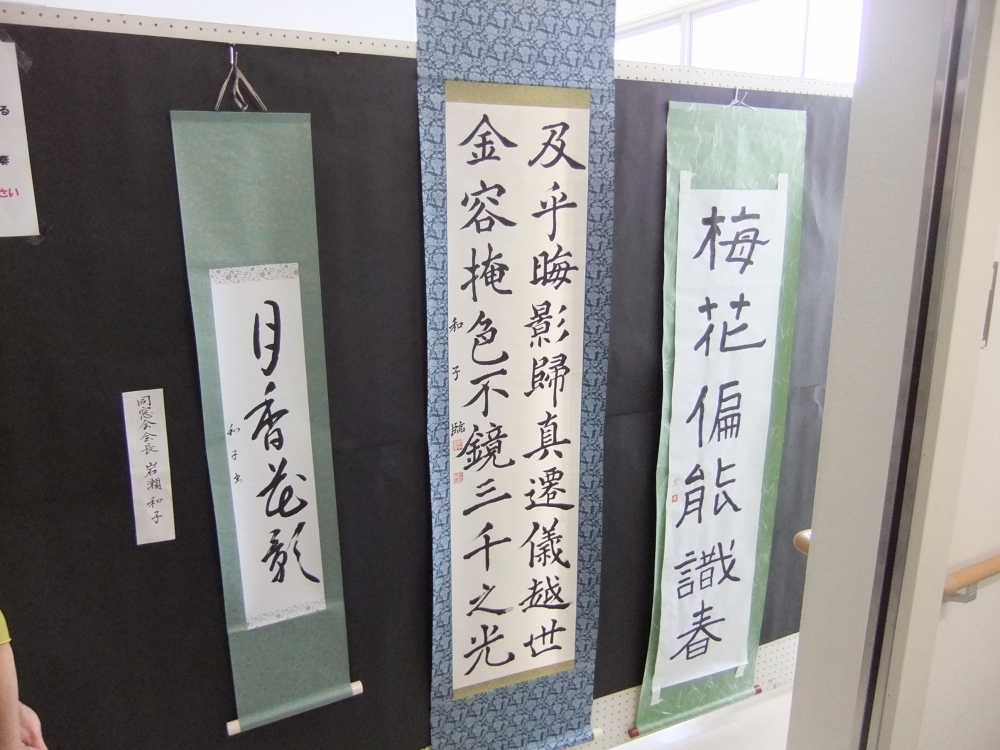 る
奏
さい
同窓会会長 岩瀬 和子
月香花影
和子書
及乎晦影歸真遷儀越世
金容掩色不鏡三千之光
和子臨
梅花偏能識春